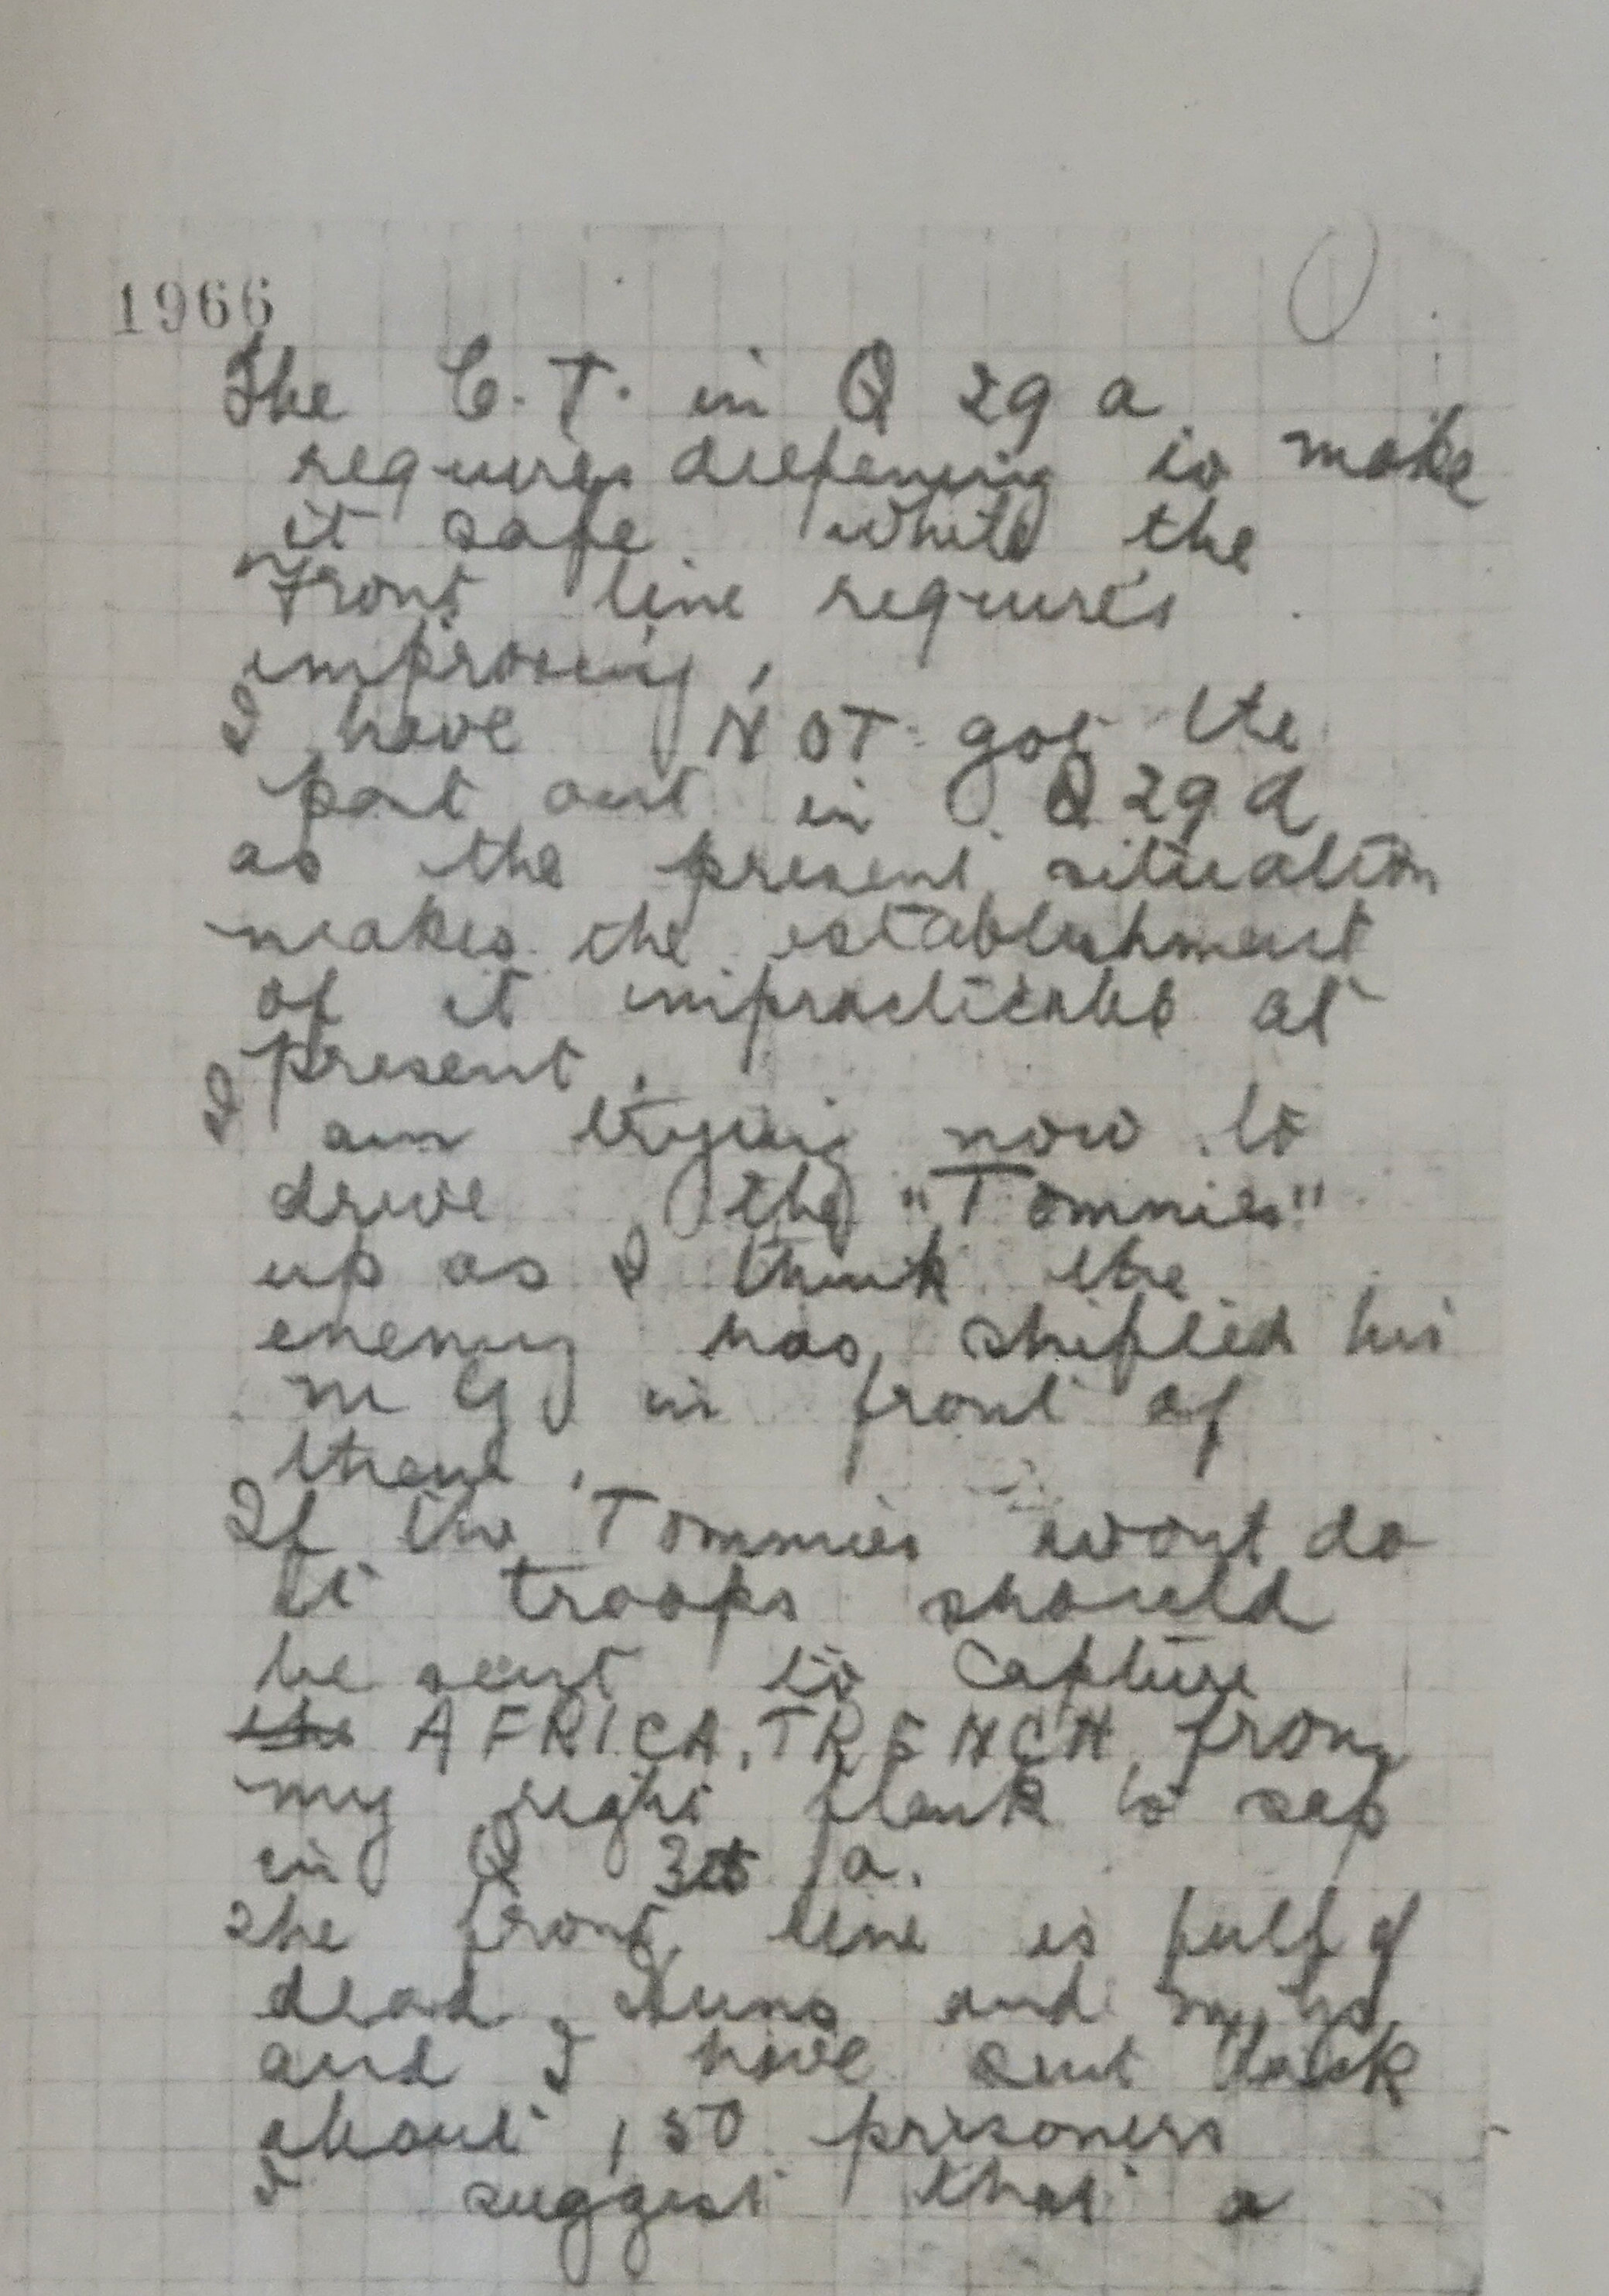 1966
The C.T. in Q 29 a
requires deepening to make
it safe while the
Front line requires
improving,
I have NOT got the
post out in Q 29 d
as the present situation
makes the establishment
of it impracticable at
present.
I am trying now to
drive the "Tommies"
up as I think the
enemy has shifted his
m G in front of
them.
If the Tommies wont do
it troops should
be sent to capture
the AFRICA TRENCH from
my right flank to sap
in Q a.
The front line is full of
dead Huns and
and I have sent back
about 150 prisoners
I suggest that a